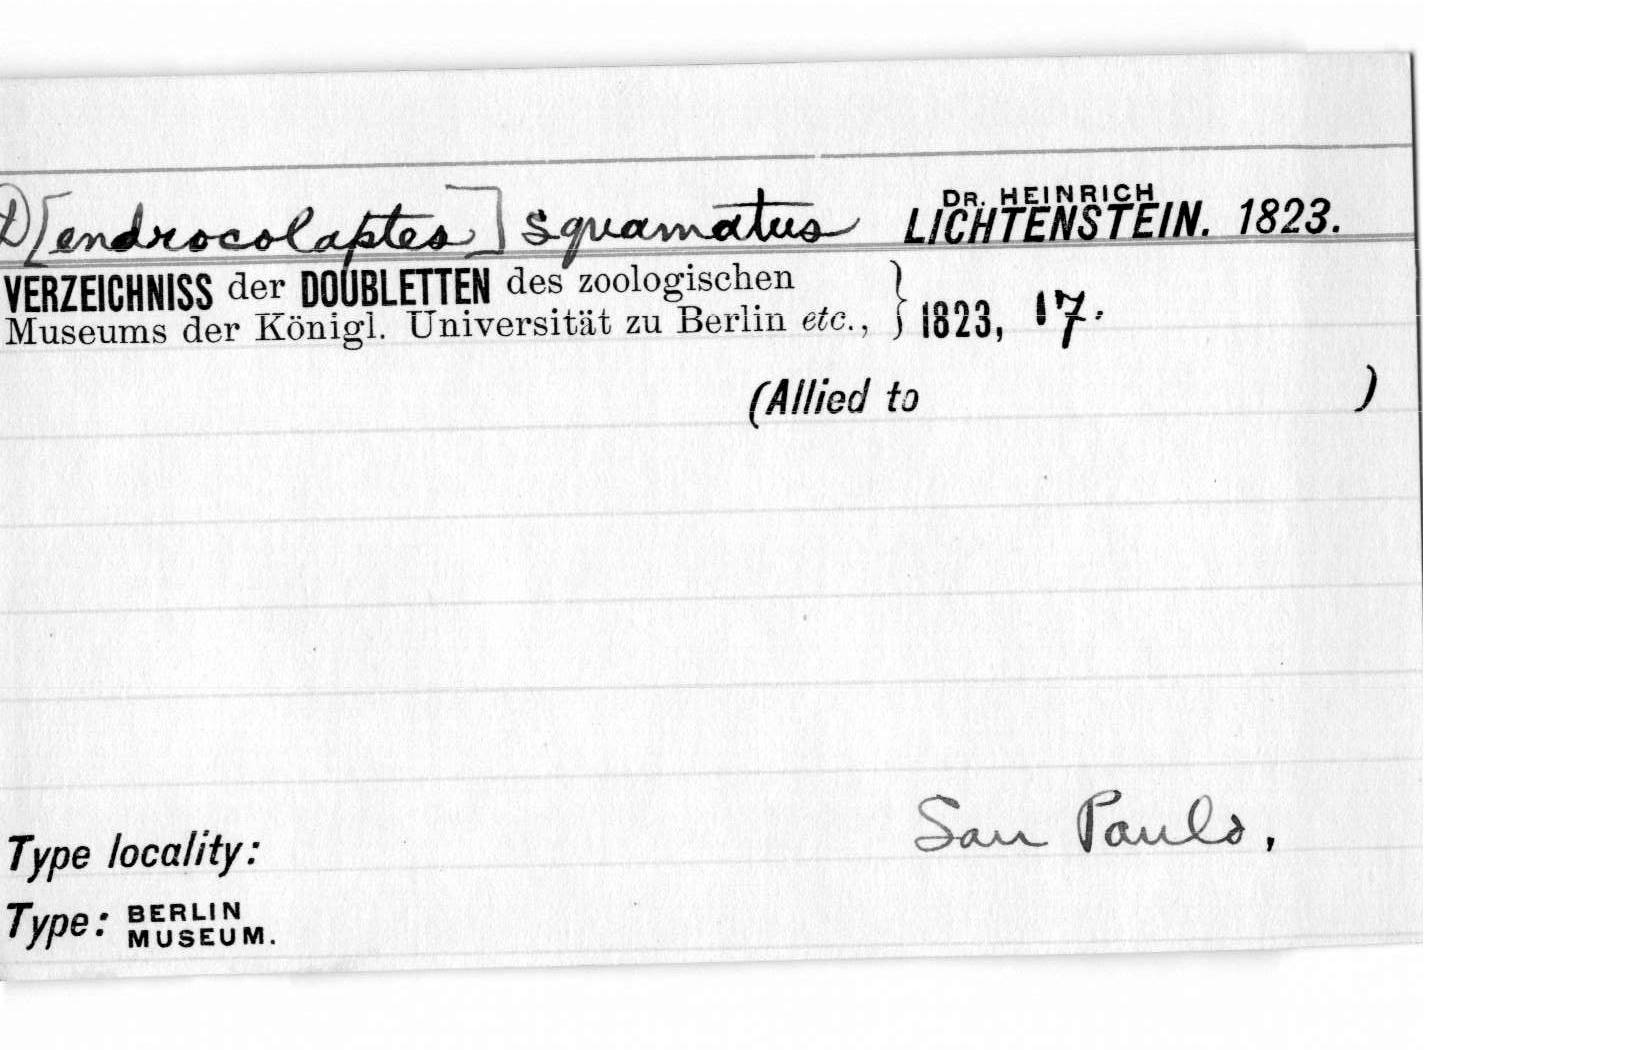 D[endrocolaptes] squamatus DR. HEINRICH LICHTENSTEIN. 1823.
VERZEICHNISS der DOUBLETTEN des zoologischen
Museums der Königl. Universität zu Berlin etc., } 1823, 17.
(Allied to )
San Paulo,
Type locality:
Type: BERLIN MUSEUM.